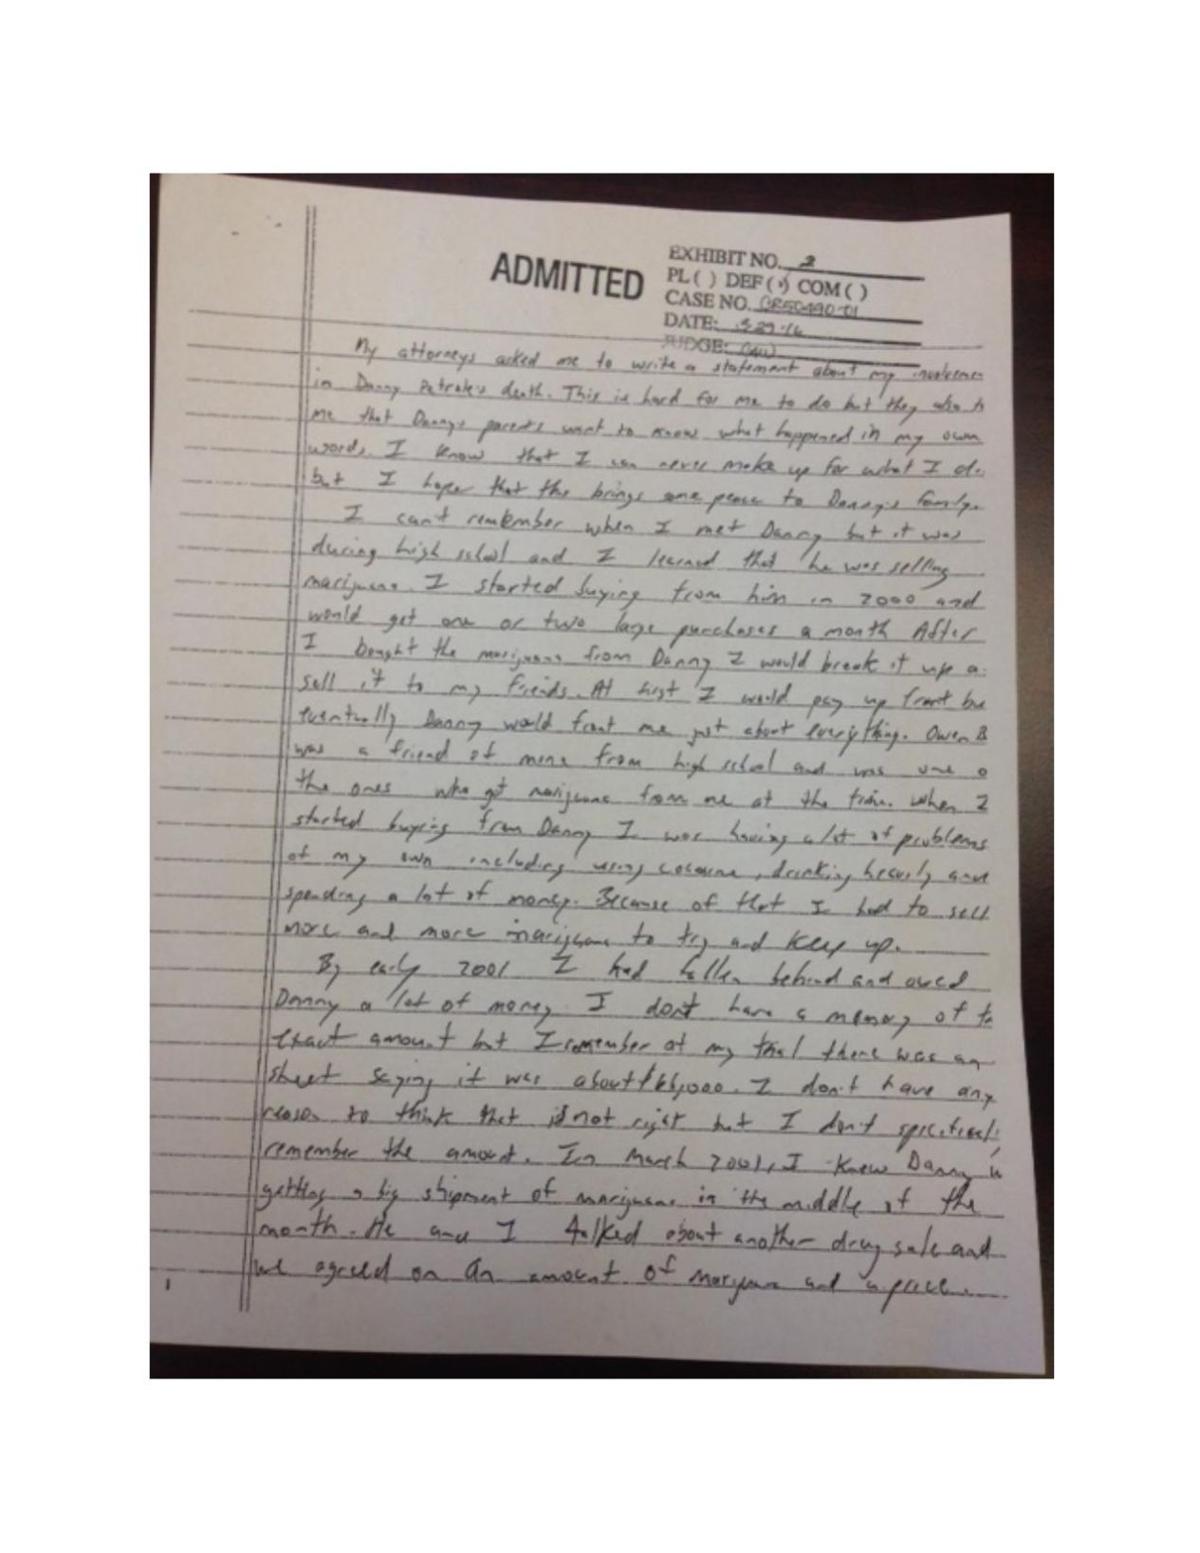 ADMITTED
EXHIBIT NO. 2
PL ( ) DEF ( ) COM ( )
CASE NO. CR50490-01
DATE: 3-29-16
JUDGE:
My attorneys asked me to write a statement about my involvemen
in Danny Petrole's death. This is hard for me to do but they also
me that Danny's parents want to know what happened in my own
words. I know that I can never make up for what I di
but I hope that this brings some peace to Danny's family.
I can't remember when I met Danny but it was
during high school and I learned that he was selling
marijuana. I started buying from him in 2000 and
would get one or two large purchases a month After
I bought the marijuana from Danny I would break it up a
sell it to my friends. At first I would pay up front bu
eventually Danny would front me just about everything. Owen B
was a friend of mine from high school and was one o
the ones who got marijuana from me at the time. When I
started buying from Danny I was having a lot of problems
of my own including using cocaine, drinking heavily and
spending a lot of money. Because of that I had to sell
more and more marijuana to try and keep up.
By early 2001 I had fallen behind and owed
Danny a lot of money. I don't have a memory of
exact amount but I remember at my trial there was an
sheet saying it was about $66,000. I don't have any
reason to think that is not right but I don't specificall
remember the amount. In March 2001, I knew Danny
getting a big shipment of marijuana in the middle of the
month. He and I talked about another drug sale and
we agreed on an amount of marijuana and a price.
1